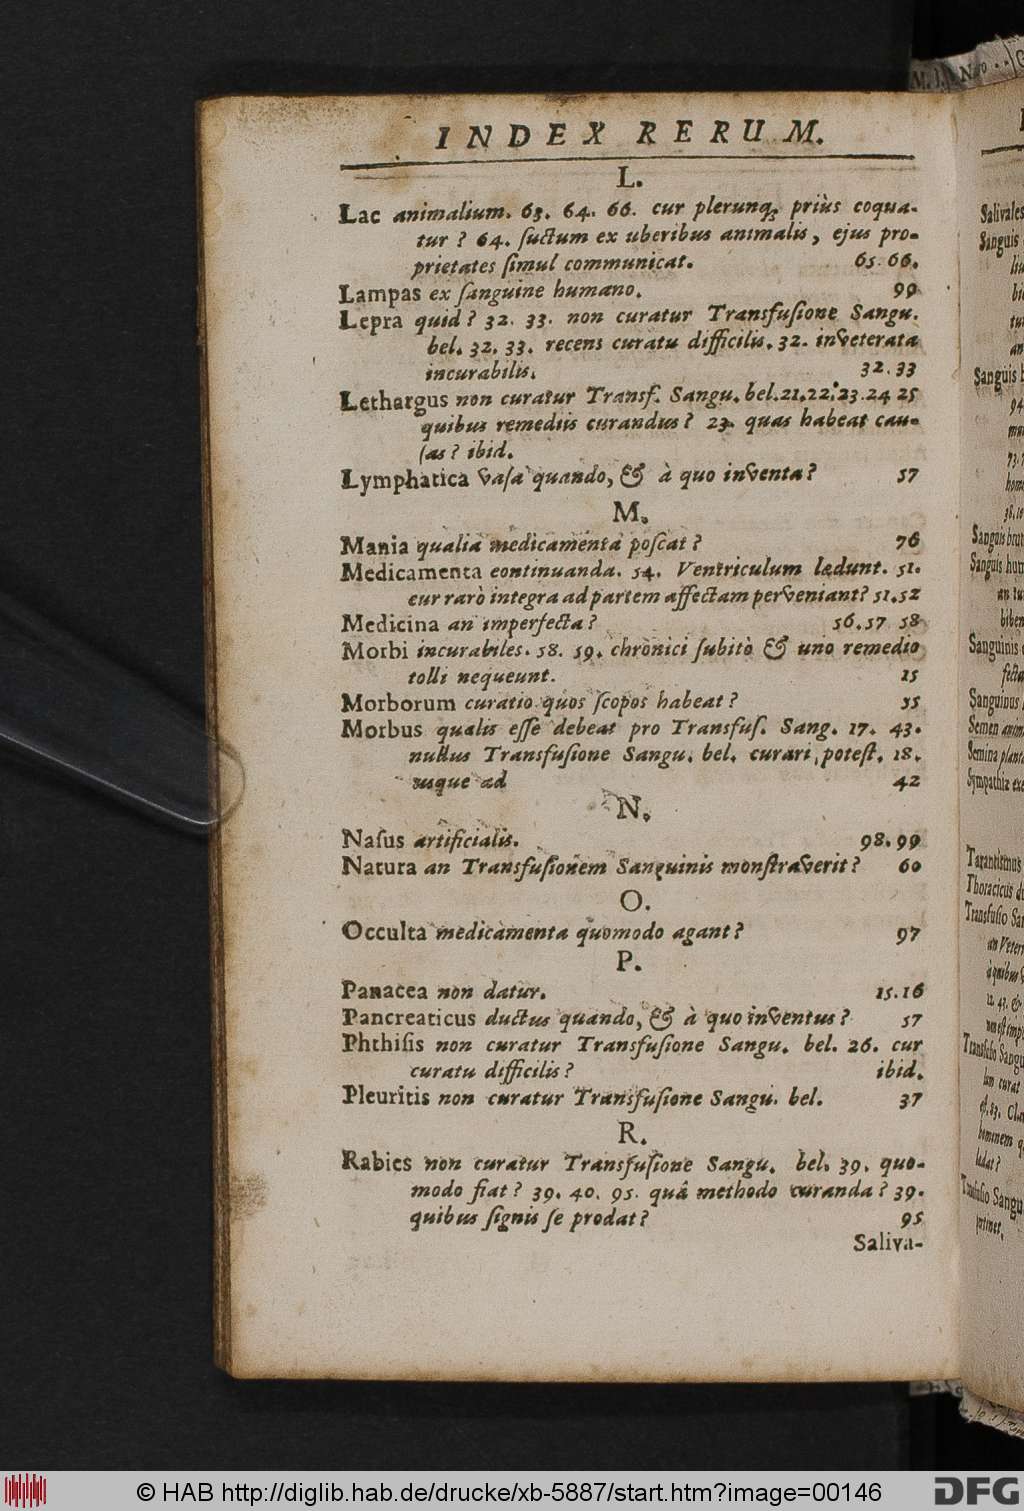 INDEX RERUM.
L.
Lac animalium. 63. 64. 66. cur plerunq; priùs coqua-
tur? 64. ſuctum ex uberibus animalis, ejus pro-
prietates ſimul communicat. 65. 66.
Lampas ex ſanguine humano. 99
Lepra quid? 32. 33. non curatur Transfuſione Sangu.
bel. 32. 33. recens curatu difficilis. 32. inveterata
incurabilis. 32.33
Lethargus non curatur Transf. Sangu. bel. 21.22.23.24 25
quibus remediis curandus? 23. quas habeat cau-
ſas? ibid.
Lymphatica vaſa quando, & à quo inventa? 57
M.
Mania qualia medicamenta poſcat? 76
Medicamenta continuanda. 54. Ventriculum lædunt. 51.
cur rarò integra ad partem affectam perveniant? 51.52
Medicina an imperfecta? 56.57 58
Morbi incurabiles. 58. 59. chronici ſubitò & uno remedio
tolli nequeunt. 15
Morborum curatio quos ſcopos habeat? 35
Morbus qualis eſſe debeat pro Transfuſ. Sang. 17. 43.
nullus Transfuſione Sangu. bel. curari poteſt. 18.
usque ad 42
N.
Naſus artificialis. 98.99
Natura an Transfuſionem Sanguinis monſtraverit? 60
O.
Occulta medicamenta quomodo agant? 97
P.
Panacea non datur. 15.16
Pancreaticus ductus quando, & à quo inventus? 57
Phthiſis non curatur Transfuſione Sangu. bel. 26. cur
curatu difficilis? ibid.
Pleuritis non curatur Transfuſione Sangu. bel. 37
R.
Rabies non curatur Transfuſione Sangu. bel. 39. quo-
modo fiat? 39. 40. 95. quâ methodo curanda? 39.
quibus ſignis ſe prodat? 95
Saliva-
Salivales
Sanguis
Sanguis
94
73.
38.
Sanguis brut
Sanguis hum
an tu
biben
Sanguinis
fecta
Sanguinus
Semen anim
Semina planta
Sympathiæ exe
Tarantismus
Thoracicus du
Transfuſio San
an Veter
à quibus
12. 43. &
non eſt imp
Transfuſio Sangu
lum curat
hominem q
ladat?
Transfuſio Sangu
pertinet.
© HAB http://diglib.hab.de/drucke/xb-5887/start.htm?image=00146
DFG